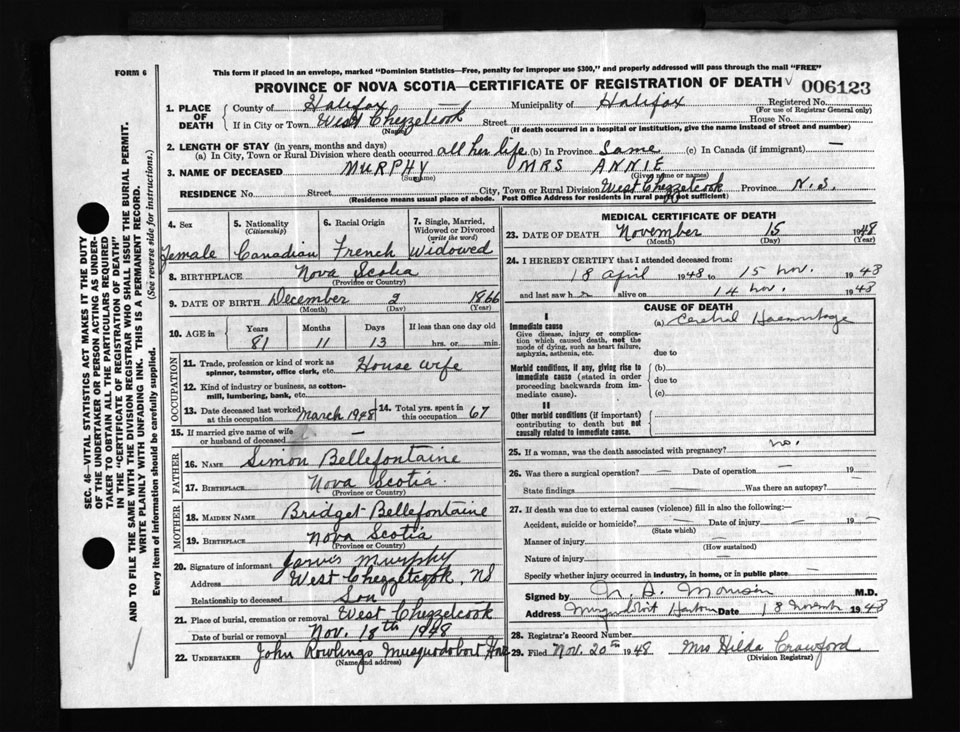 FORM 6
This form if placed in an envelope, marked "Dominion Statistics—Free, penalty for improper use $300," and properly addressed will pass through the mail "FREE"
PROVINCE OF NOVA SCOTIA—CERTIFICATE OF REGISTRATION OF DEATH 006123
SEC. 46—VITAL STATISTICS ACT MAKES IT THE DUTY OF THE UNDERTAKER OR PERSON ACTING AS UNDERTAKER TO OBTAIN ALL THE PARTICULARS REQUIRED IN THE "CERTIFICATE OF REGISTRATION OF DEATH"
AND TO FILE THE SAME WITH THE DIVISION REGISTRAR WHO SHALL ISSUE THE BURIAL PERMIT.
WRITE PLAINLY WITH UNFADING INK. THIS IS A PERMANENT RECORD.
Every item of information should be carefully supplied. (See reverse side for instructions.)
1. PLACE OF DEATH County of Halifax Municipality of Halifax Registered No.
(For use of Registrar General only)
If in City or Town West Chezzetcook Street House No.
(Name) (If death occurred in a hospital or institution, give the name instead of street and number)
2. LENGTH OF STAY (in years, months and days)
(a) In City, Town or Rural Division where death occurred all her life (b) In Province Same (c) In Canada (if immigrant) —
3. NAME OF DECEASED MURPHY MRS ANNIE
(Surname) (Given name or names)
RESIDENCE No. Street City, Town or Rural Division West Chezzetcook Province N.S.
(Residence means usual place of abode. Post Office Address for residents in rural parts not sufficient)
4. Sex 5. Nationality (Citizenship) 6. Racial Origin 7. Single, Married, Widowed or Divorced (write the word)
Female Canadian French Widowed
8. BIRTHPLACE Nova Scotia
(Province or Country)
9. DATE OF BIRTH December 2 1866
(Month) (Day) (Year)
10. AGE in Years Months Days If less than one day old
81 11 13 hrs. or min.
OCCUPATION
11. Trade, profession or kind of work as spinner, teamster, office clerk, etc. House wife
12. Kind of industry or business, as cotton-mill, lumbering, bank, etc.
13. Date deceased last worked at this occupation March 1948 14. Total yrs. spent in this occupation 67
15. If married give name of wife or husband of deceased —
FATHER
16. NAME Simon Bellefontaine
17. BIRTHPLACE Nova Scotia
(Province or Country)
MOTHER
18. MAIDEN NAME Bridget Bellefontaine
19. BIRTHPLACE Nova Scotia
(Province or Country)
20. Signature of informant Jarvis Murphy
Address West Chezzetcook, NS
Relationship to deceased Son
21. Place of burial, cremation or removal West Chezzetcook
Date of burial or removal Nov. 18th 1948
22. UNDERTAKER John Rowlings Musquodoboit Hbr
(Name and address)
MEDICAL CERTIFICATE OF DEATH
23. DATE OF DEATH November 15 1948
(Month) (Day) (Year)
24. I HEREBY CERTIFY that I attended deceased from:
18 April 1948 to 15 Nov. 1948
and last saw h alive on 14 Nov. 1948
CAUSE OF DEATH
I
Immediate cause (a) Cerebral Haemorrhage
Give disease, injury or complication which caused death, not the mode of dying, such as heart failure, asphyxia, asthenia, etc. due to
Morbid conditions, if any, giving rise to immediate cause (stated in order proceeding backwards from immediate cause). (b)
due to
(c)
II
Other morbid conditions (if important) contributing to death but not causally related to immediate cause.
25. If a woman, was the death associated with pregnancy? no.
26. Was there a surgical operation? — Date of operation — 19 —
State findings Was there an autopsy? —
27. If death was due to external causes (violence) fill in also the following:—
Accident, suicide or homicide? — Date of injury — 19 —
(State which)
Manner of injury
(How sustained)
Nature of injury —
Specify whether injury occurred in industry, in home, or in public place —
Signed by Morrison M.D.
Address Musquodoboit Harbour Date 18 November 1948
28. Registrar's Record Number
29. Filed Nov. 20th 1948 Mrs Hilda Crawford
(Division Registrar)